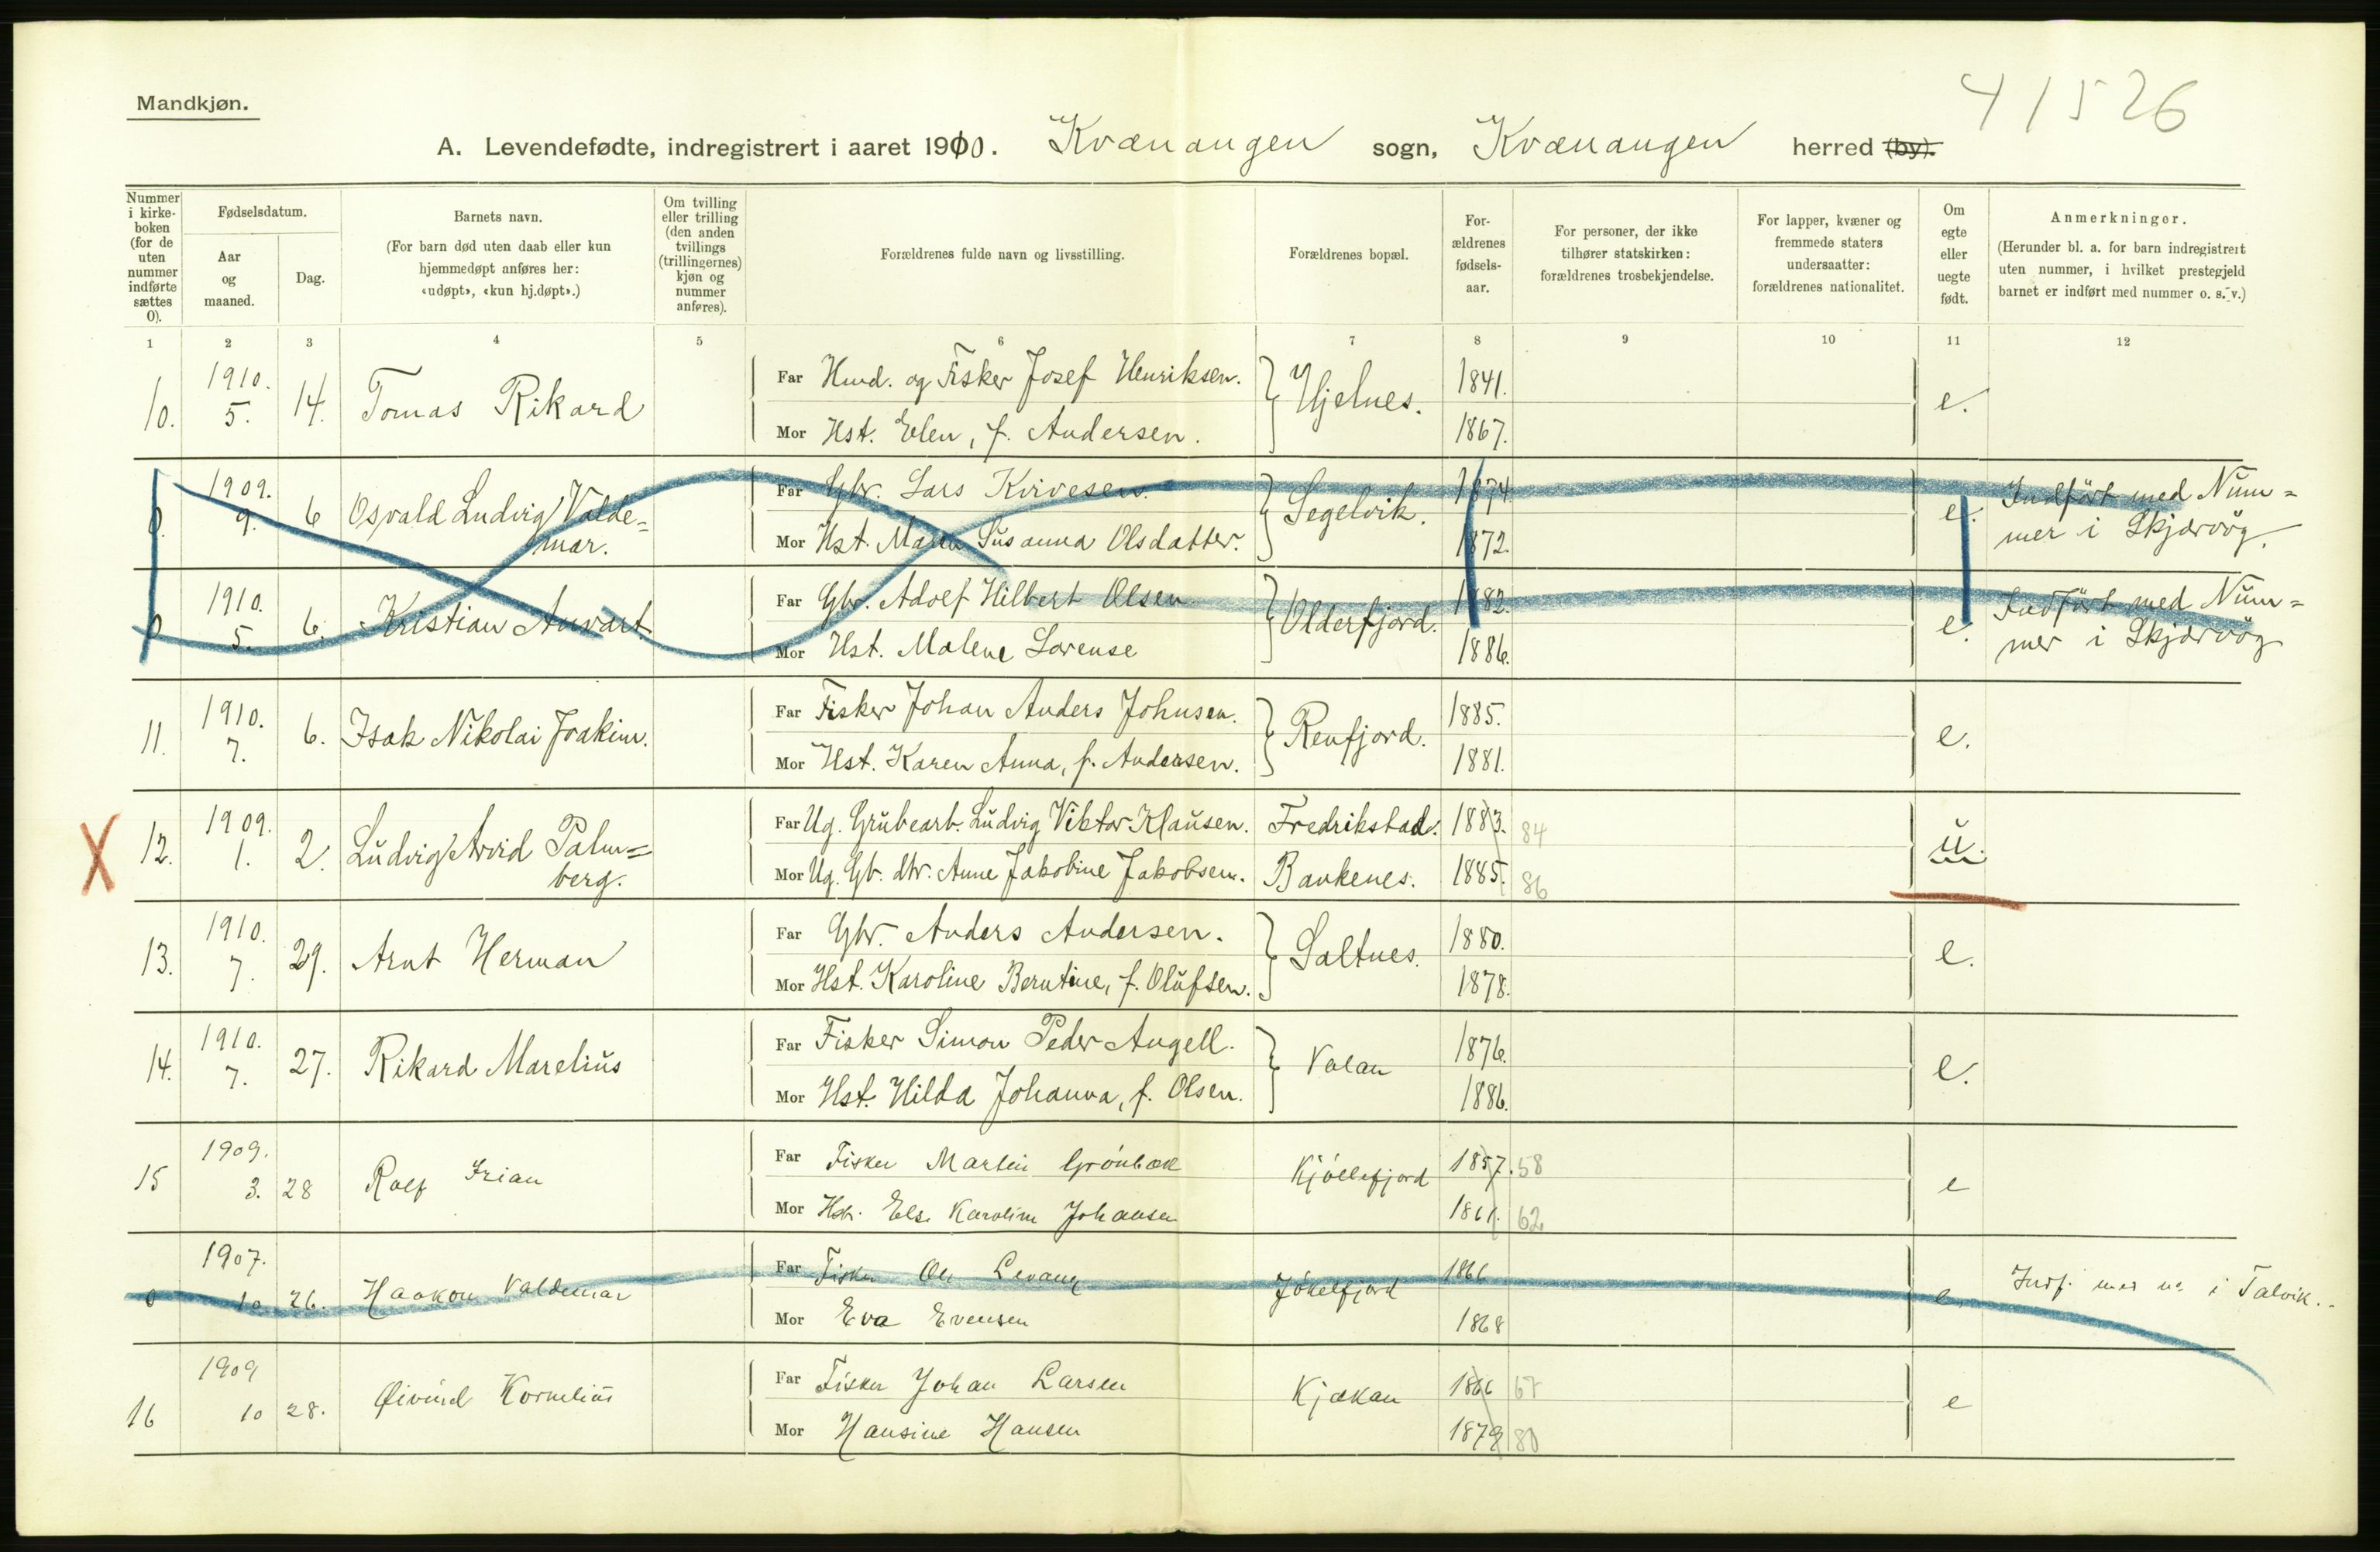 Mandkjøn.
41526
A. Levendefødte, indregistrert i aaret 1910. Kvænangen sogn, Kvænangen herred (by).
Nummer i kirke-boken (for de uten nummer indførte sættes 0).
Fødselsdatum.
Aar og maaned.
Dag.
Barnets navn.
(For barn død uten daab eller kun hjemmedøpt anføres her: «udøpt», «kun hj.døpt».)
Om tvilling eller trilling (den anden tvillings (trillingernes) kjøn og nummer anføres).
Forældrenes fulde navn og livsstilling.
Forældrenes bopæl.
For-ældrenes fødsels-aar.
For personer, der ikke tilhører statskirken: forældrenes trosbekjendelse.
For lapper, kvæner og fremmede staters undersaatter: forældrenes nationalitet.
Om egte eller uegte født.
Anmerkninger.
(Herunder bl. a. for barn indregistrert uten nummer, i hvilket prestegjeld barnet er indført med nummer o. s. v.)
1 2 3 4 5 6 7 8 9 10 11 12
10. 1910. 5. 14. Tomas Rikard
Far Hmd. og Fisker Josef Henriksen. Hjelnes. 1841. e.
Mor Hst. Elen, f. Andersen. 1867.
0. 1909. 9. 6 Osvald Ludvig Valde=
mar.
Far Gbr. Lars Kvivesen. Segelvik. 1874. e. Indført med Num=
Mor Hst. Malen Susanna Olsdatter. 1872. mer i Skjærvøg.
0 1910. 5. 6. Kristian Anvart
Far Gbr. Adolf Hilbert Olsen Olderfjord. 1882. e. Indført med Num=
Mor Hst. Malene Lorense 1886. mer i Skjærvøg
11. 1910. 7. 6. Isak Nikolai Joakim.
Far Fisker Johan Anders Johnsen. Renfjord. 1885. e.
Mor Hst. Karen Anna, f. Andersen. 1881.
X 12. 1909. 1. 2. Ludvig Arvid Palm=
berg.
Far Ug. Grubearb. Ludvig Viktor Klausen. Fredrikstad. 1883. 84 u.
Mor Ug. Gb. dtr. Anne Jakobine Jakobsen. Bankenes. 1885. 86
13. 1910. 7. 29. Arnt Herman
Far Gbr. Anders Andersen. Saltnes. 1880. e.
Mor Hst. Karoline Berntine, f. Olufsen. 1878.
14. 1910. 7. 27. Rikard Marelius
Far Fisker Simon Peder Angell. Valan 1876. e.
Mor Hst. Hilda Johanna, f. Olsen. 1886.
15 1909. 3. 28 Rolf Irian
Far Fisker Martin Grönbæk Kjöllefjord 1857. 58 e
Mor Hst. Else Karoline Johansen 1861. 62
0 1907. 10 26. Haakon Valdemar
Far Fisker Ole Levang Jökelfjord 1866 e. Indf. med no i Talvik.
Mor Eva Evensen 1868
16 1909 10 28. Øivind Kornelius
Far Fisker Johan Larsen Kjækan 1866 67 e
Mor Hansine Hansen 1879 80